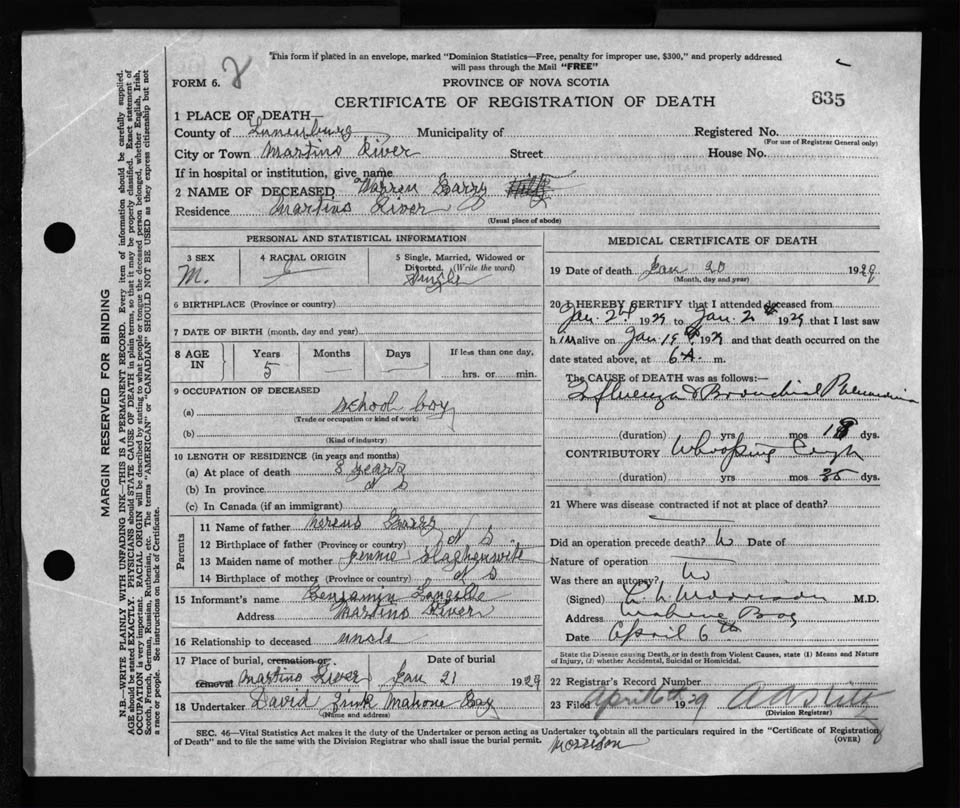 This form if placed in an envelope, marked "Dominion Statistics—Free, penalty for improper use, $300," and properly addressed
will pass through the Mail "FREE"
FORM 6. 8
PROVINCE OF NOVA SCOTIA
CERTIFICATE OF REGISTRATION OF DEATH
835
1 PLACE OF DEATH—
County of Lunenburg Municipality of Registered No.
(For use of Registrar General only)
City or Town Martins River Street House No.
If in hospital or institution, give name
2 NAME OF DECEASED Warren Barry
Residence Martins River
(Usual place of abode)
PERSONAL AND STATISTICAL INFORMATION
3 SEX 4 RACIAL ORIGIN 5 Single, Married, Widowed or
Divorced. (Write the word)
M. Single
6 BIRTHPLACE (Province or country)
7 DATE OF BIRTH (month, day and year)
8 AGE IN Years Months Days If less than one day,
5 hrs. or min.
9 OCCUPATION OF DECEASED
(a) school boy
(Trade or occupation or kind of work)
(b)
(Kind of industry)
10 LENGTH OF RESIDENCE (in years and months)
(a) At place of death 8 years
(b) In province N S
(c) In Canada (if an immigrant)
Parents
11 Name of father Nereus
12 Birthplace of father (Province or country) N S.
13 Maiden name of mother Jennie
14 Birthplace of mother (Province or country) N S
15 Informant's name Benjamin Langille
Address Martins River
16 Relationship to deceased uncle
17 Place of burial, cremation or removal Martins River Date of burial Jan 21 1929
18 Undertaker David Zink Mahone Bay
(Name and address)
MEDICAL CERTIFICATE OF DEATH
19 Date of death Jan 20 1929
(Month, day and year)
20 I HEREBY CERTIFY that I attended deceased from
Jan. 2nd 1929 to Jan. 1929 that I last saw
h im alive on Jan 19th 1929 and that death occurred on the
date stated above, at 6 A. m.
The CAUSE of DEATH was as follows:—
Influenza & Bronchial Pneumonia
(duration) yrs mos 18 dys.
CONTRIBUTORY Whooping Cough
(duration) yrs mos 35 dys.
21 Where was disease contracted if not at place of death?
Did an operation precede death? No Date of
Nature of operation
Was there an autopsy? No
(Signed) Morrison M.D.
Address Mahone Bay
Date April 6th
State the Disease causing Death, or in death from Violent Causes, state (1) Means and
Nature of Injury, (2) whether Accidental, Suicidal or Homicidal.
22 Registrar's Record Number
23 Filed April 6th 1929
(Division Registrar)
SEC. 46—Vital Statistics Act makes it the duty of the Undertaker or person acting as Undertaker to obtain all the particulars required in the "Certificate of Registration
of Death" and to file the same with the Division Registrar who shall issue the burial permit. (OVER)
Morrison
MARGIN RESERVED FOR BINDING
N.B.—WRITE PLAINLY WITH UNFADING INK—THIS IS A PERMANENT RECORD. Every item of information should be carefully supplied.
AGE should be stated EXACTLY. PHYSICIANS should STATE CAUSE OF DEATH in plain terms, so that it may be properly classified. Exact statement of
OCCUPATION is very important. RACIAL ORIGIN will be described by stating to what people or tongue the deceased person belonged, whether English, Irish,
Scotch, French, German, Russian, Ruthenian, etc. The terms "AMERICAN" or "CANADIAN" SHOULD NOT BE USED as they express citizenship but not
a race or people. See instructions on back of Certificate.